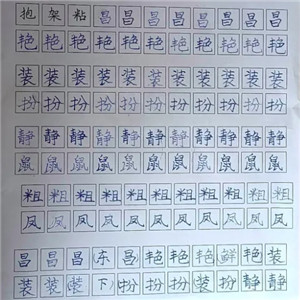 抱架粘昌昌昌昌昌昌昌
艳艳艳艳艳艳艳艳艳艳
装装装装装装装装装装
扮扮扮扮扮扮扮扮扮扮
静静静静静静静静静静
鼠鼠鼠鼠鼠鼠鼠鼠鼠鼠
粗粗粗粗粗粗粗粗粗粗
凤凤凤凤凤凤凤凤凤凤
昌昌昌(东艳艳艳鲜艳装
装装(装下)扮扮(装扮静静